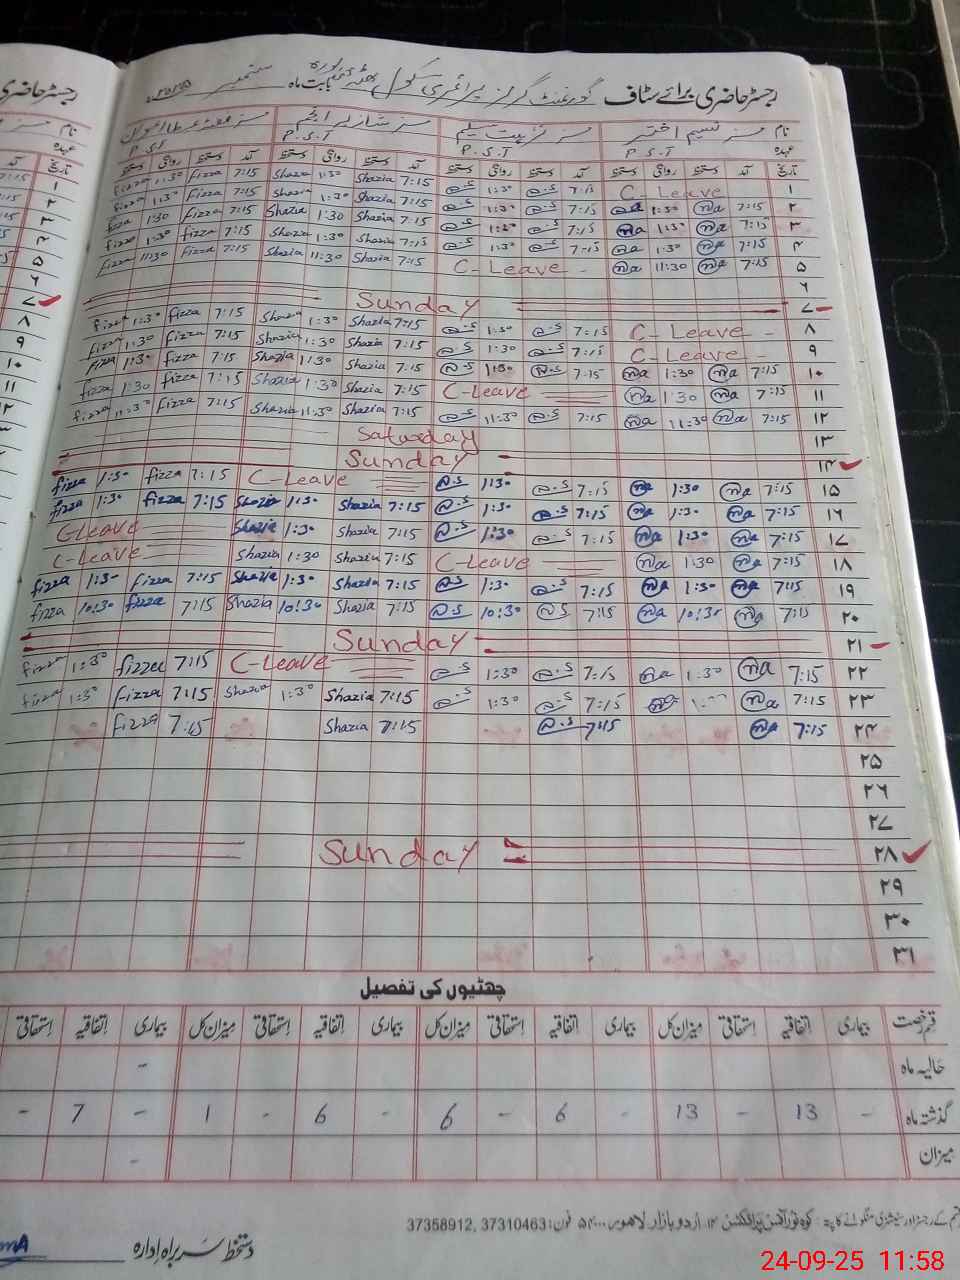 رجسٹر حاضری برائے سٹاف گورنمنٹ گرلز پرائمری سکول بابت ماہ ستمبر
نام مسز نسیم اختر مسز نزہت سلیم مسز شازیہ انجم
عہدہ P.S.T P.S.T P.S.T P.S.T
تاریخ آمد دستخط روانگی دستخط آمد دستخط روانگی دستخط آمد دستخط روانگی دستخط آمد دستخط روانگی دستخط
۱ C-Leave 7:15 1:30 7:15 Shazia 1:30 Shazia 7:15 fizza 1:30 fizza
۲ 7:15 1:30 7:15 1:30 7:15 Shazia 1:30 Shazia 7:15 fizza 1:30 fizza
۳ 7:15 1:30 7:15 7:15 Shazia 1:30 Shazia 7:15 fizza 1:30 fizza
۴ 7:15 1:30 7:15 1:30 7:15 Shazia 1:30 Shazia 7:15 fizza 1:30 fizza
۵ 7:15 11:30 C-Leave 7:15 Shazia 11:30 Shazia 7:15 fizza 11:30 fizza
۶
۷ Sunday
۸ C-Leave 7:15 1:30 7:15 Shazia 1:30 Shazia 7:15 fizza 1:30 fizza
۹ C-Leave 7:15 1:30 7:15 Shazia 1:30 Shazia 7:15 fizza 1:30 fizza
۱۰ 7:15 1:30 7:15 1:30 7:15 Shazia 1:30 Shazia 7:15 fizza 1:30 fizza
۱۱ 7:15 1:30 C-Leave 7:15 Shazia 1:30 Shazia 7:15 fizza 1:30 fizza
۱۲ 7:15 11:30 7:15 11:30 7:15 Shazia 11:30 Shazia 7:15 fizza 11:30 fizza
۱۳ Saturday
۱۴ Sunday
۱۵ 7:15 1:30 7:15 1:30 C-Leave 7:15 fizza 1:30 fizza
۱۶ 7:15 1:30 7:15 1:30 7:15 Shazia 1:30 Shazia 7:15 fizza 1:30 fizza
۱۷ 7:15 1:30 7:15 1:30 7:15 Shazia 1:30 Shazia C-Leave
۱۸ 7:15 1:30 C-Leave 7:15 Shazia 1:30 Shazia C-Leave
۱۹ 7:15 1:30 7:15 1:30 7:15 Shazia 1:30 Shazia 7:15 fizza 1:30 fizza
۲۰ 7:15 10:30 7:15 10:30 7:15 Shazia 10:30 Shazia 7:15 fizza 10:30 fizza
۲۱ Sunday
۲۲ 7:15 1:30 7:15 1:30 C-Leave 7:15 fizza 1:30 fizza
۲۳ 7:15 7:15 1:30 7:15 Shazia 1:30 Shazia 7:15 fizza 1:30 fizza
۲۴ 7:15 7:15 7:15 Shazia 7:15 fizza
۲۵
۲۶
۲۷
۲۸ Sunday
۲۹
۳۰
۳۱
چھٹیوں کی تفصیل
قسم رخصت بیماری اتفاقیہ استحقاقی میزان کل بیماری اتفاقیہ استحقاقی میزان کل بیماری اتفاقیہ استحقاقی میزان کل بیماری اتفاقیہ استحقاقی
حالیہ ماہ -
گذشتہ ماہ - 13 - 13 - 6 - 6 - 6 - 1 - 7 -
میزان -
اردو بازار لاہور فون: 37310463, 37358912
دستخط سربراہ ادارہ
24-09-25 11:58